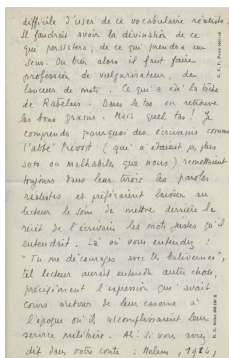 difficile d'user de ce vocabulaire réaliste.
Il faudrait avoir la divination de ce
qui persistera, de ce qui prendra un
sens. Ou bien alors il faut faire
profession de vulgarisateur, de
lanceur de mots. Ce qui a été la tâche
de Rabelais. Dans le tas on retrouve
les bons grains. Mais quel tas! Je
comprends pourquoi des écrivains comme
l'abbé Prévost (qui n'était ni plus
sots ou malhabile que nous) remettaient
toujours dans leur tiroir les paroles
réalistes et préféraient laisser au
lecteur le soin de mettre derrière le
récit de l'écrivain les mots justes qu'il
entendrait. Là où vous entendez :
"Tu me décourages avec tes balivernes",
tel lecteur aurait entendu autre chose,
précisément l'expression qui avait
cours autour de leur caserne à
l'époque où ils accomplissaient leur
service militaire. Ah! Si vous aviez
dit dans votre conte : Melun, 1924,